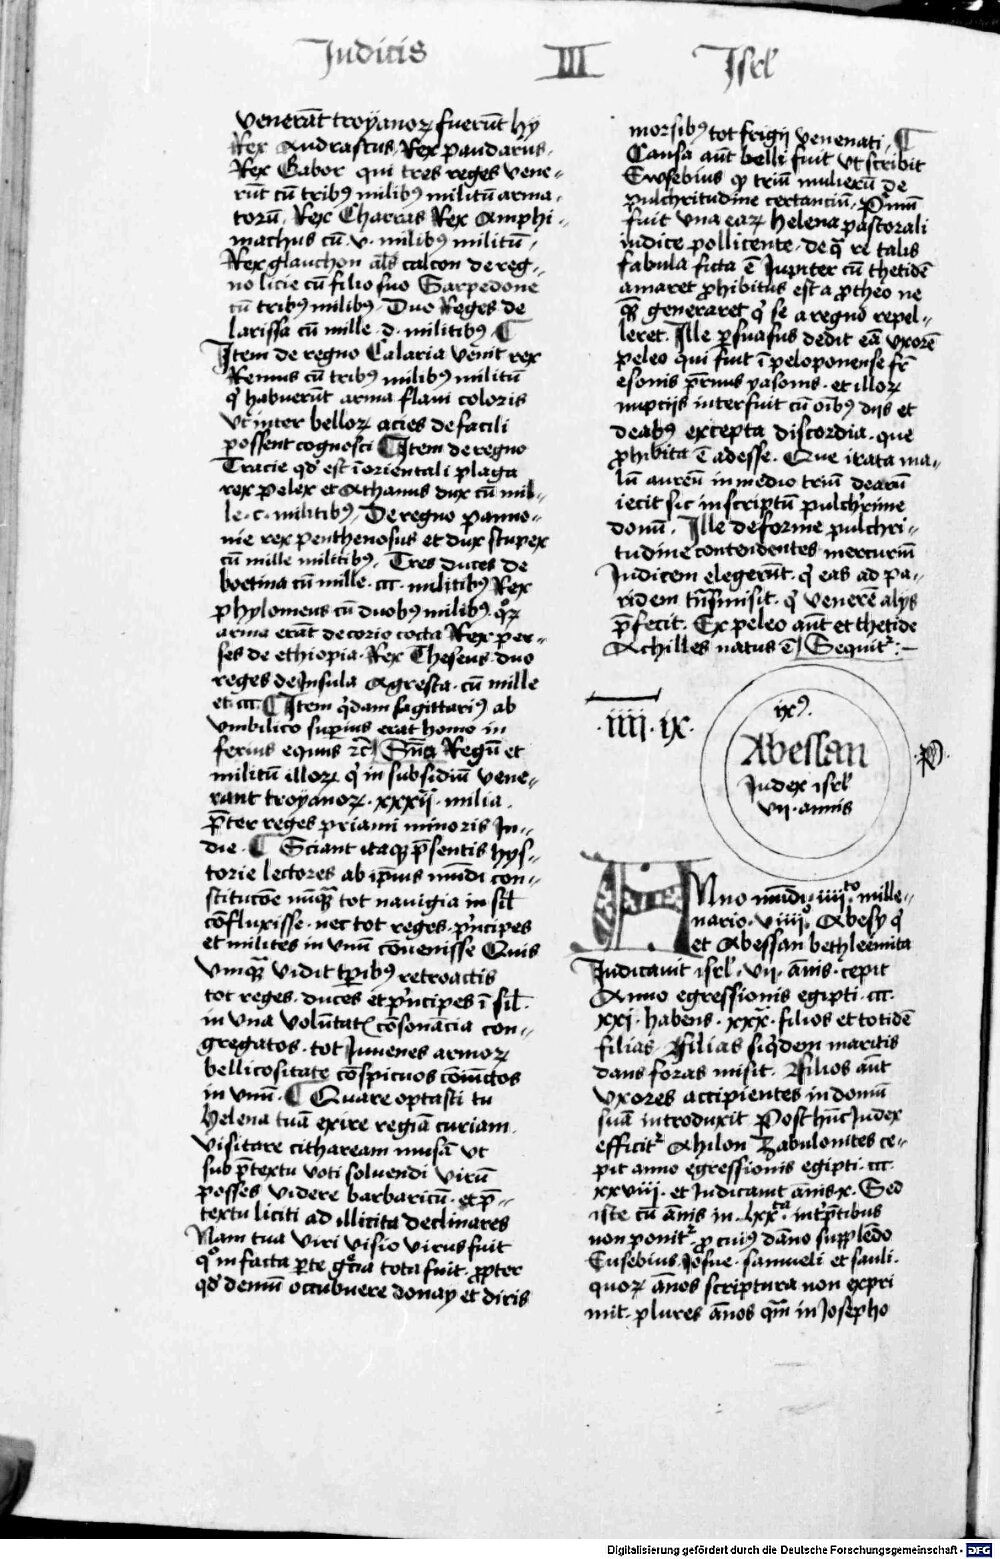 Judicis III Isrl
venerūt troyanoꝝ fuerūt hy
Rex Andrastus, Rex pandarus.
Rex Gabor qui tres reges vene-
rūt cū tribꝰ milibꝰ militū arma-
torū. Rex Charras Rex Amphi-
machus cū .v. milibꝰ militū,
Rex glauchon al̄s calcon de reg-
no licie cū filio suo Sarpedone
cū tribꝰ milibꝰ. Duo Reges de
Larissa cū mille .d. militibꝰ ¶
Item de regno Calaria venit rex
Remus cū tribꝰ milibꝰ militū
qͥ habuerūt arma flavi coloris
Vt inter belloꝝ acies de facili
possent cognosci ¶ Item de regno
Tracie qd̓ est ī orientali plaga
rex pelex et Athamus dux cū mil-
le .c. militibꝰ. De regno panno-
nie rex penthenosus et dux stupex
cū mille militibꝰ. Tres duces de
boetina cū mille .ccc. militibꝰ Rex
phylomeus cū duobꝰ milibꝰ qͦꝝ
arma erāt de corio cocta Rex per-
ses de ethiopia. Rex Theseus. duo
reges de Insula Agresta. cū mille
et .ccc. ¶ Item qͥdam sagittariꝰ ab
vmbilico supͥius erat homo in
ferius equus ꝛc̄ Sūa Regū et
militū illoꝝ qͥ in subsidiū vene-
rant troyanoꝝ .xxxij. milia.
p̄ter reges priami minoris In-
die. ¶ Sciant itaqꝫ p̄sentis hys-
torie lectores ab ip̄ius mūdi con-
stitucōe nūqͣꝫ tot navigia in sil̄
cōfluxisse. nec tot reges. pͥncipes
et milites in vnū cōvenisse Quis
vmqͣꝫ vidit tp̄ribꝰ retroactis
tot reges. duces et pͥncipes ī sil̄.
in vna volūtatꝭ cōsonācia con-
gregatos. tot Juvenes armoꝝ
bellicositate cōspicuos cōiūctos
in vnū. ¶ Quare optasti tu
helena tuā exire regiā curiam.
visitare cithaream insulā vt
sub p̄textu voti soluendi virū
posses videre barbaricū. et p̄-
textu liciti ad illicita declinares
Nam tua viri visio virus fuit
qͦ infacta ꝑte gͣcia tota fuit. ꝓpter
qd̓ demū occubuere donay et diris
morsibꝰ tot frigij venenati. ¶
Causa aūt belli fuit vt scribit
Ewsebius qꝫ triū mulierū de
pulchritudine certanciū. Pͥmū
fuit vna eaꝝ helena pastorali
iudice pollicente. de qͣ re talis
fabula ficta ē Jupiter cū thetidē
amaret ꝓhibitus est a ꝓtheo ne
qͣꝫ generaret qͥ se a regno repel-
leret. Ille ꝑsuasus dedit eā vxorē
peleo qui fuit ī peloponense fr̄
esonis pr̄mus yasonis. et illoꝝ
nuptijs interfuit cū oībꝰ dijs et
deabꝰ excepta discordia. que
ꝓhibita ē adesse. Que irata ma-
lū aureū in medio triū dearū
iecit sic inscriptū pulchͥrime
donū. Ille de forme pulchri-
tudine contendentes mercuriū
Judicem elegerūt. qͥ eas ad pa-
ridem tͣnsmisit. qͥ venerē alijs
p̄fecit. Ex peleo aūt et thetide
Achilles natus ē Sequitꝛ :-
.iiij.ix.
ixꝰ.
Abessan
Judex isrl̓
vij. annis
ANno mūdi. iiijto. mille-
nario. viiijͦ. Abesy qͥ
et Abessan bethleemita
Judicavit isrl̓. vij. ānis. cepit
Anno egressionis egipti .ccc.
xxj. habens .xxx. filios et totidē
filias. Filias siqͥdem maritis
dans foras misit. Filios aūt
vxores accipientes in domū
suā introduxit. Post hūc Judex
efficitꝛ Ahilon Zabulonites ce-
pit anno egressionis egipti .ccc.
xxviij. et Judicavit ānis x. Sed
iste cū ānis in .lxx.ta intͥp̄tibus
non ponitꝛ. ꝓ cuiꝰ dāno supplēdo
Eusebius Josue. samueli et sauli.
quoꝝ ānos scriptura non expri
mit. plures ānos qͣm in Josepho